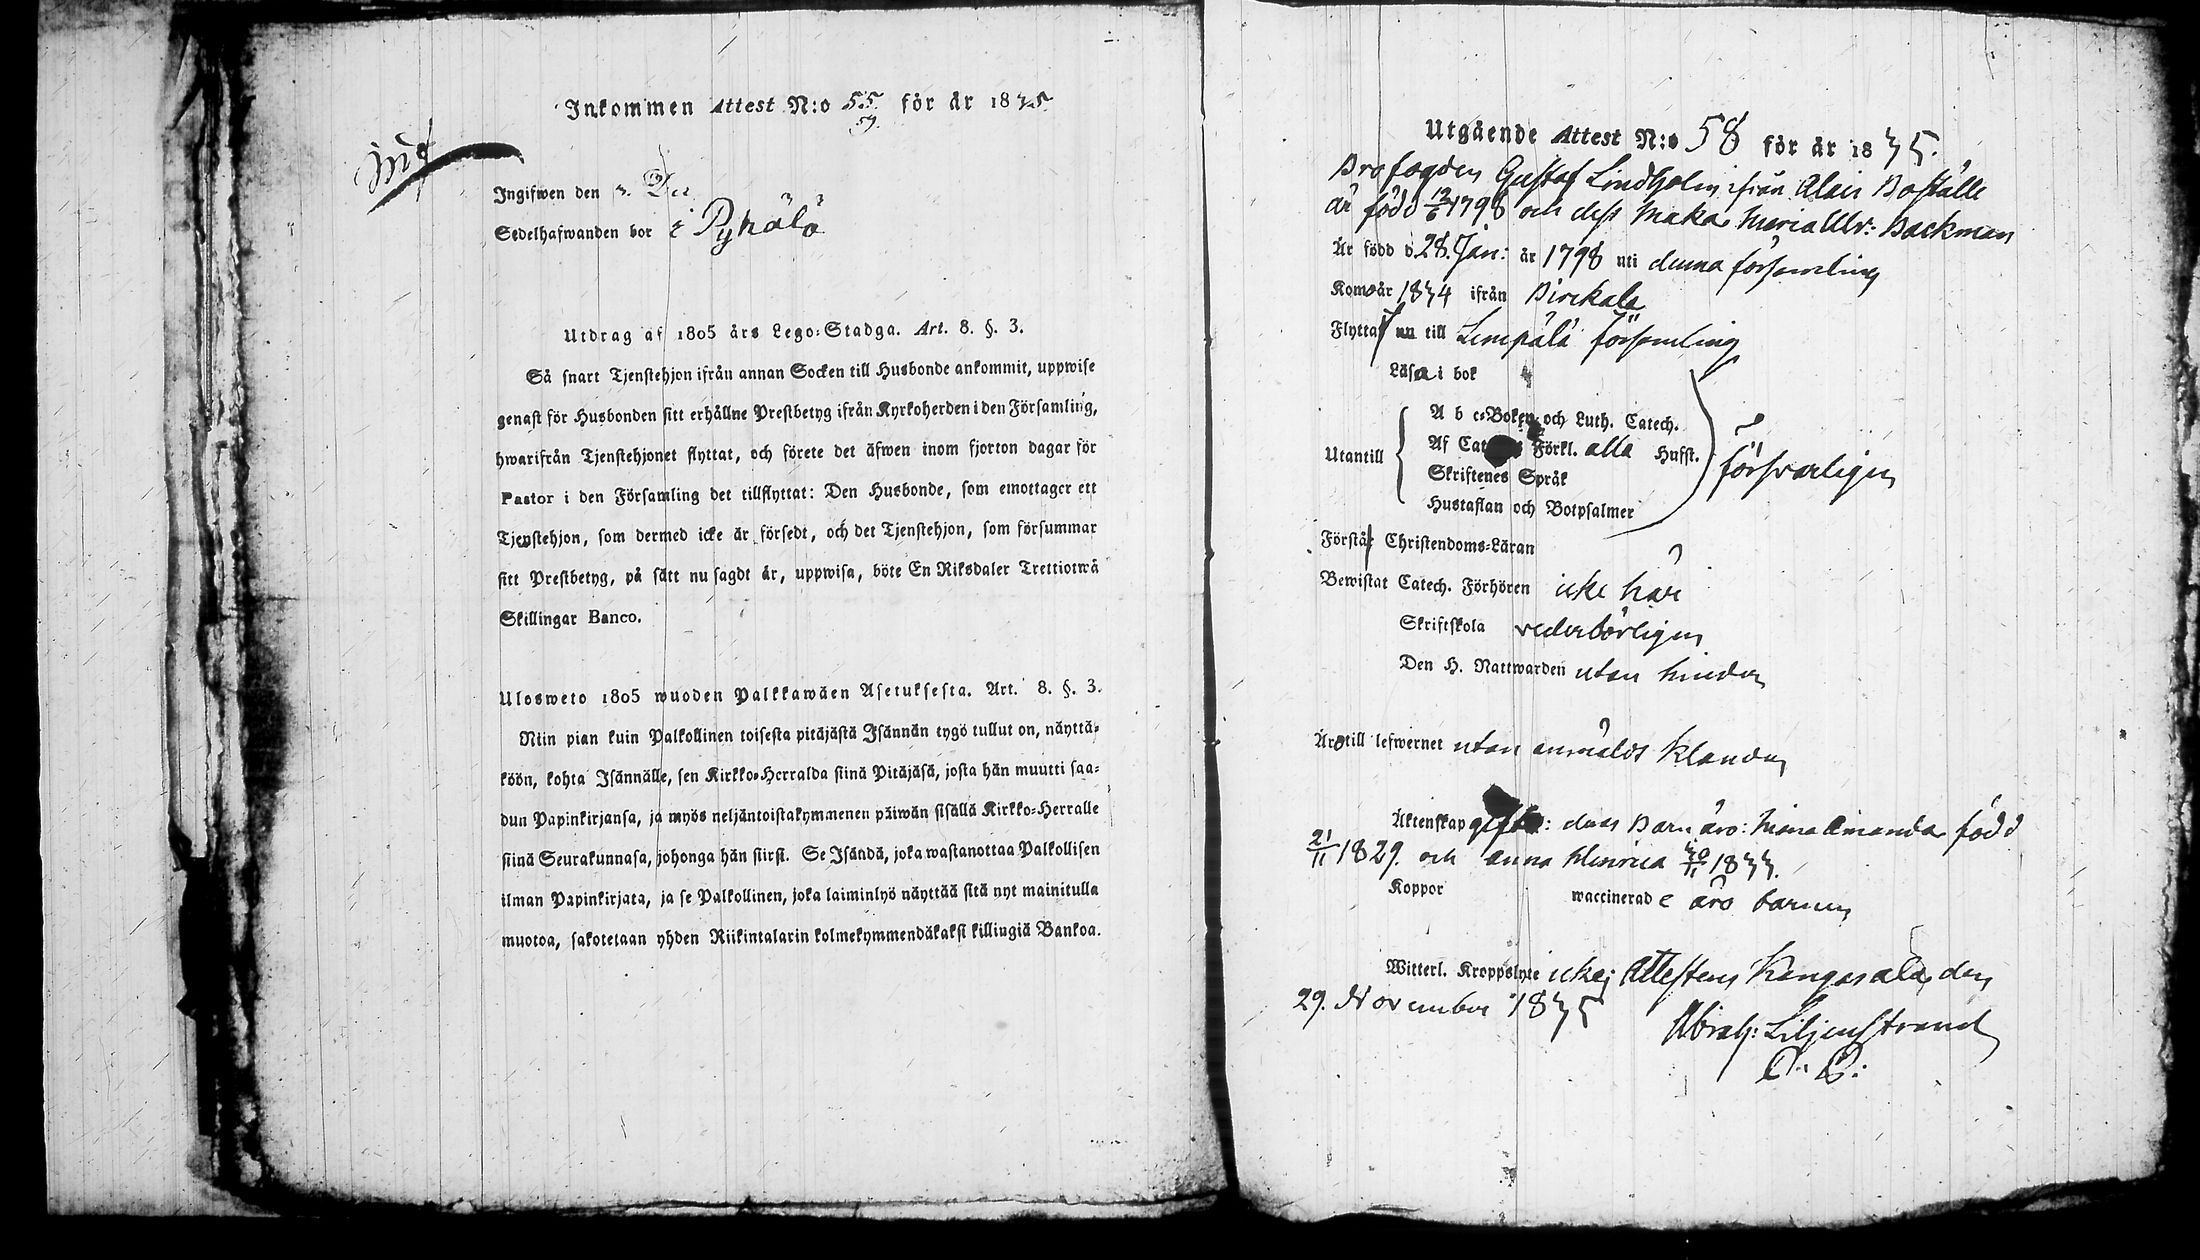 Inkommen Attest N:o 55 för år 1835
59.
inf
Ingifwen den 3. Dec
Sedelhafwanden bor i Pyhälö
Utdrag af 1805 års Lego-Stadga. Art. 8. §. 3.
Så snart Tjenstehjon ifrån annan Socken till Husbonde ankommit, uppwise
genast för Husbonden sitt erhållne Prestbetyg ifrån Kyrkoherden i den Församling,
hwarifrån Tjenstehjonet flyttat, och förete det äfwen inom fjorton dagar för
Pastor i den Församling det tillflyttat: Den Husbonde, som emottager ett
Tjenstehjon, som dermed icke är försedt, och det Tjenstehjon, som försummar
sitt Prestbetyg, på sätt nu sagdt är, uppwisa, böte En Riksdaler Trettiotwå
Skillingar Banco.
Ulosweto 1805 wuoden Palkkawäen Asetuksesta. Art. 8. §. 3.
Niin pian kuin Palkollinen toisesta pitäjästä Isännän tygö tullut on, näyttä-
köön, kohta Isännälle, sen Kirkko-Herralda siinä Pitäjäsä, josta hän muutti saa-
dun Papinkirjansa, ja myös neljäntoistakymmenen päiwän sisällä Kirkko-Herralle
siinä Seurakunnasa, johonga hän siirst. Se Isändä, joka wastanottaa Palkollisen
ilman Papinkirjata, ja se Palkollinen, joka laiminlyö näyttää sitä nyt mainitulla
muotoa, sakotetaan yhden Riikintalarin kolmekymmendäkaksi killingiä Bankoa.
Utgående Attest N:o 58 för år 1835.
Brofogden Gustaf Lindholm ifrån Boställe
är född 12/6 1798 och dess Maka Maria Ulr: Backman
Är född d. 28. Jan: år 1798 uti denna församling
Kom år 1834 ifrån Birckala
Flytta nu till Lempälä församling
Läsa i bok
A b c-Boken och Luth. Catech.
Utantill Af Cat Förkl. alla Husst. försvarligen
Skriftenes Språk
Hustaflan och Botpsalmer
Förstå Christendoms-Läran
Bewistat Catech. Förhören icke här
Skriftskola vederbörligen
Den H. Nattwarden utan hinder
Äro till lefwernet utan anmäldt klander
Äktenskap gifta: deras Barn äro: Maria Amanda född
21/11 1829. och Anna Henrica 30/11 1833.
Koppor waccinerade äro barnen
Witterl. Kroppslyte icke; Attesterer Kangasala den
29. November 1835
Abrah: Liljenstrand